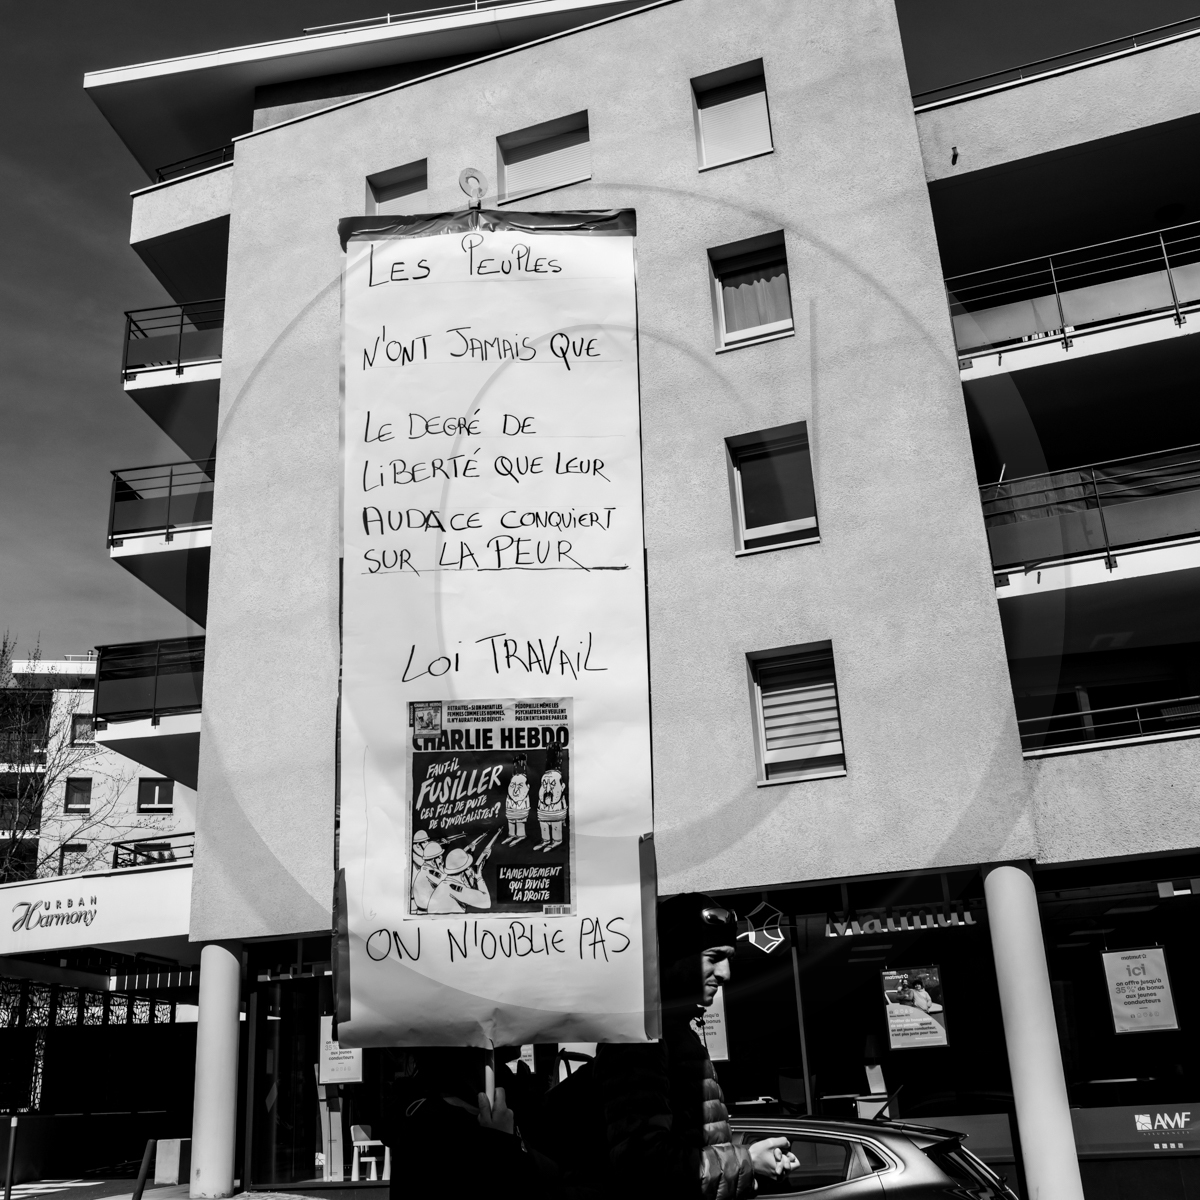 LES PEUPLES
N'ONT JAMAIS QUE
LE DEGRÉ DE
LIBERTÉ QUE LEUR
AUDACE CONQUIERT
SUR LA PEUR
LOI TRAVAIL
RETRAITES: «SI ON PAYAIT LES
FEMMES COMME LES HOMMES,
IL N'Y AURAIT PAS DE DÉFICIT»
PÉDOPHILIE MÊME LES
PSYCHIATRES NE VEULENT
PAS EN ENTENDRE PARLER
CHARLIE HEBDO
FAUT-IL
FUSILLER
CES FILS DE PUTE
DE SYNDICALISTES?
L'AMENDEMENT
QUI DIVISE
LA DROITE
ON N'OUBLIE PAS
URBAN
Harmony
Matmut
matmut
ici
on offre jusqu'à
35% de bonus
aux jeunes
conducteurs
matmut
AMF
ASSURANCES